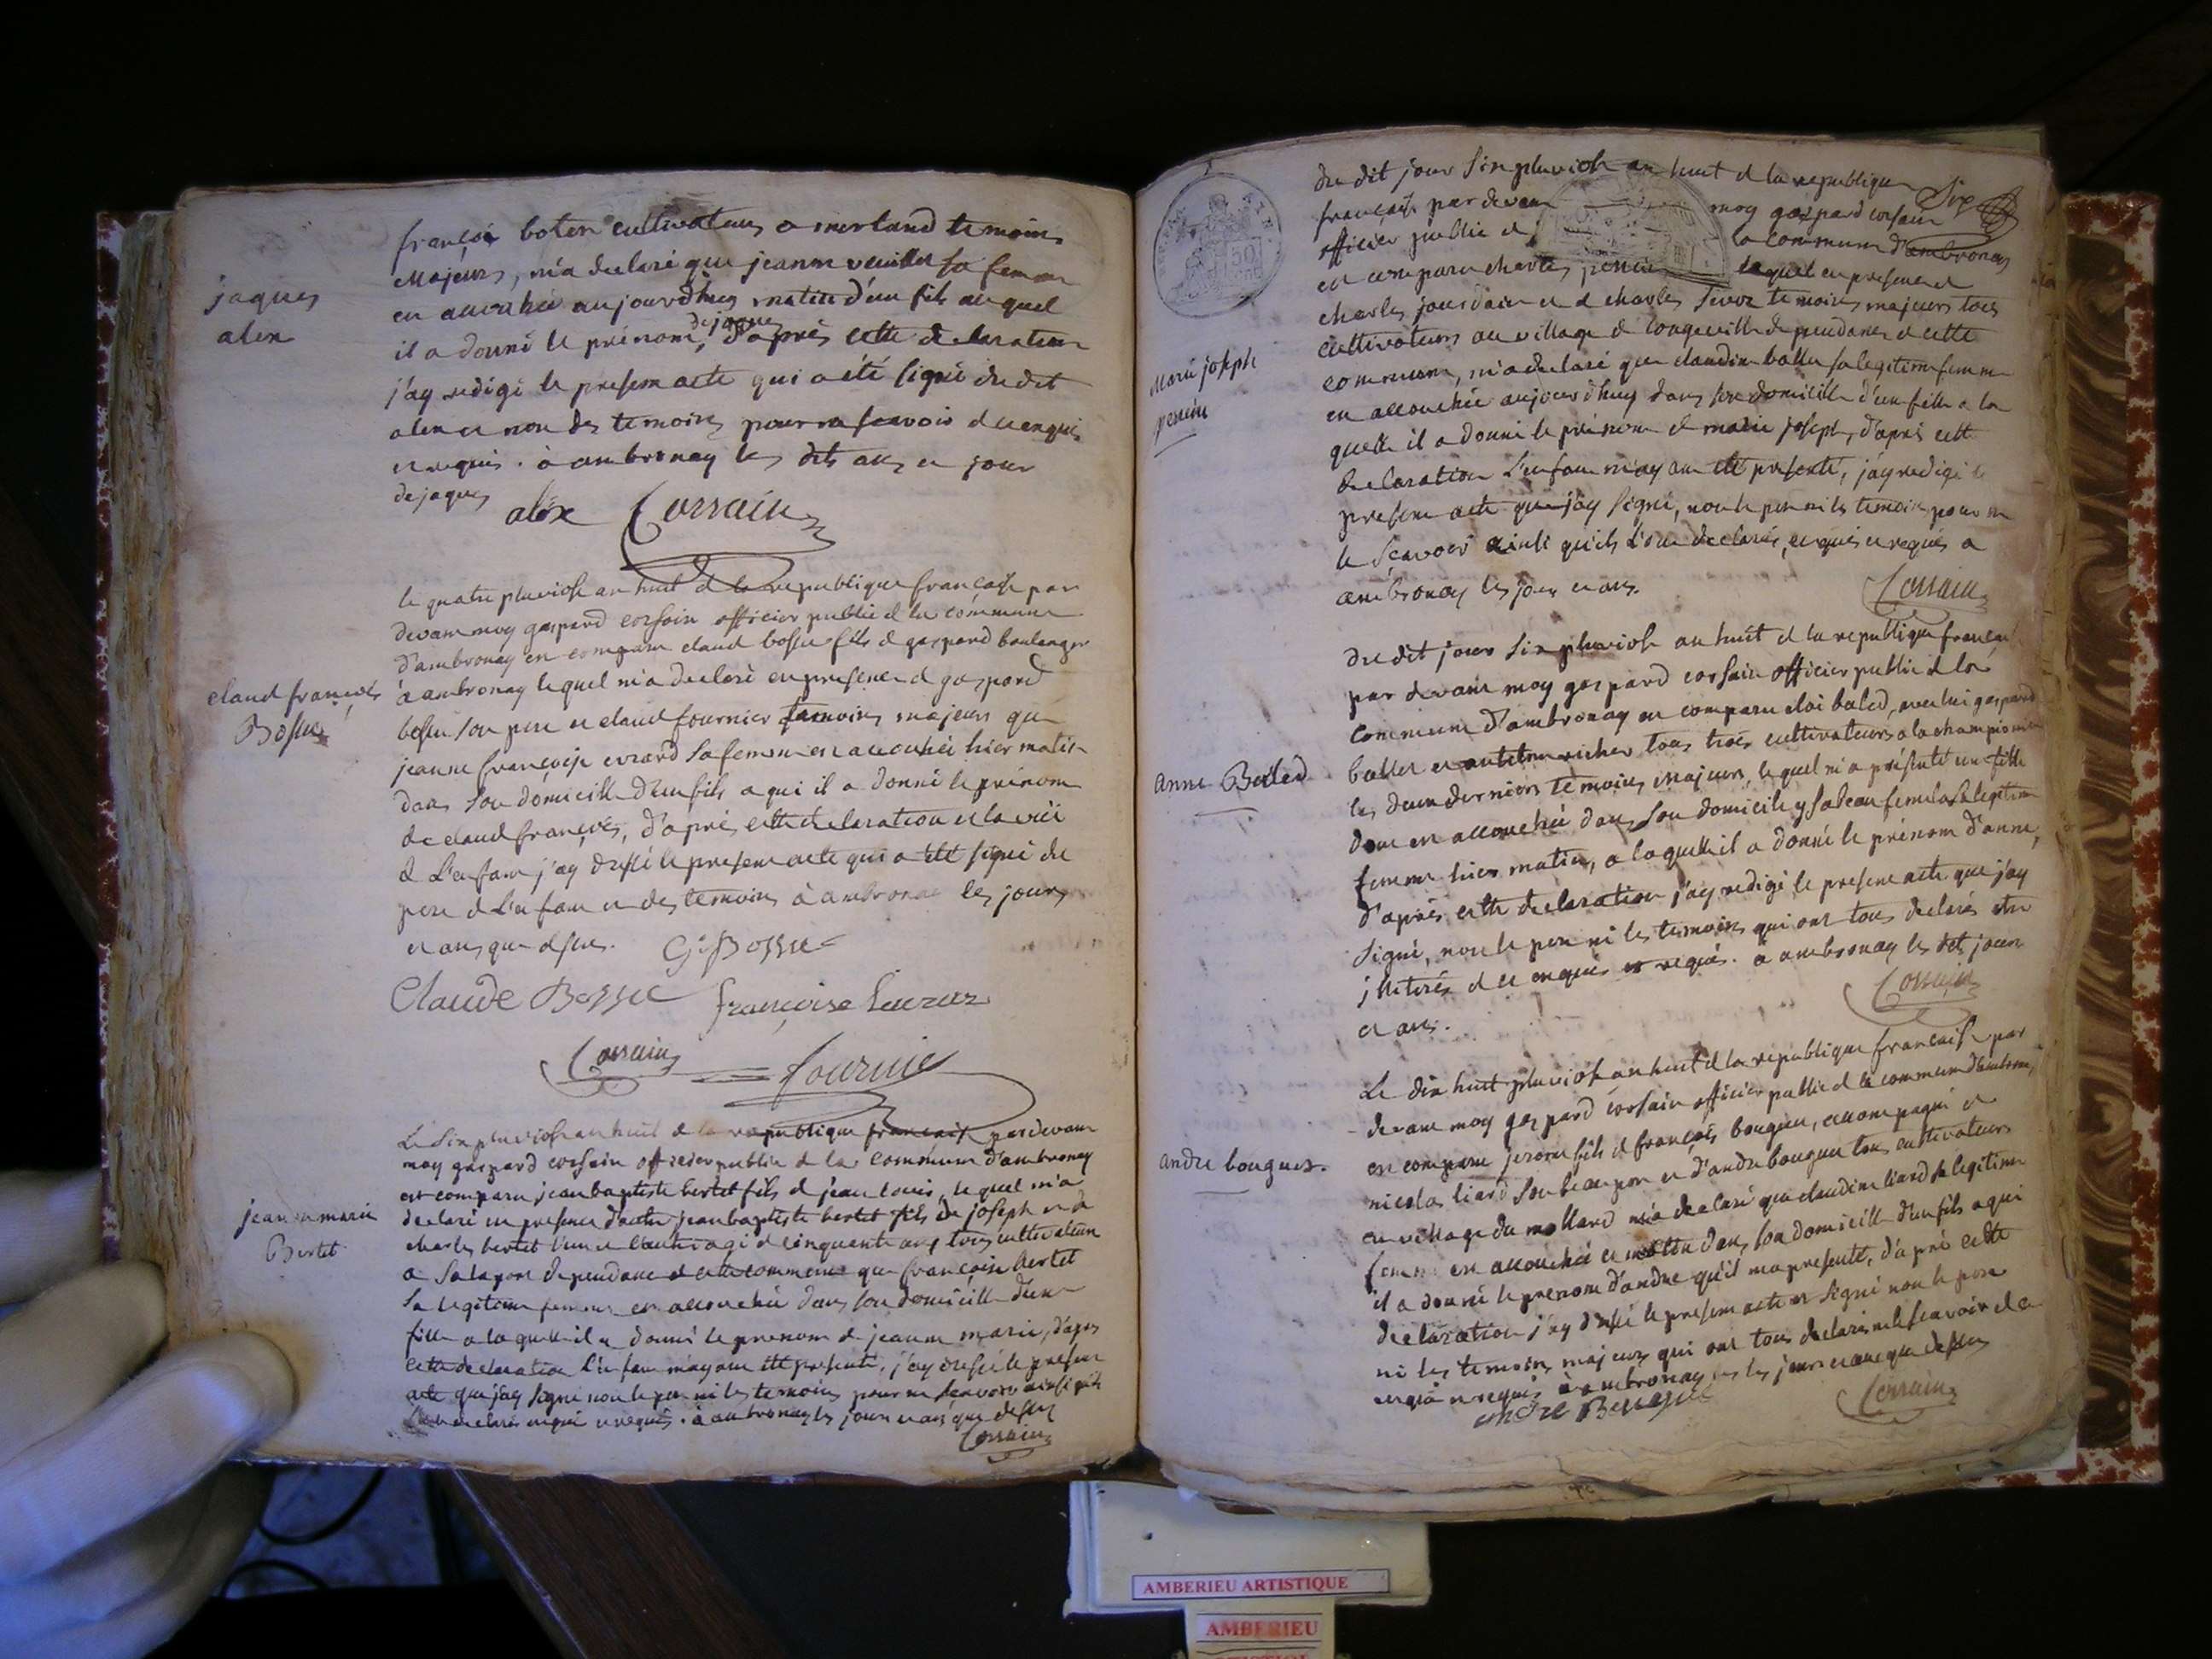 françois boten cultivateurs a merland temoins
Majeurs, m'a declaré que jeanne veuillet sa femme
jaques
alex
en accouchée aujourd'huy matin d'un fils auquel
il a donné le prénom de jaques, d'après cette declaration
j'ay redigé le present acte qui a été signé du dit
alex et non des temoins pour ne scavoir de ce enquis
et requis. à ambronay les dits ans et jour
de jaques
alex Corsain
le quatre pluviose an huit de la republique française par
devant moy gaspard corsain officier public de la commune
d'ambronay en comparu claud bossu fils de gaspard boulanger
claud françois
Bossu
à ambronay lequel m'a declaré en presence de gaspard
bossu son pere et claud fournier temoins majeurs que
jeanne françoise evrard sa femme est accouchée hier matin
dans son domicille d'un fils a qui il a donné le prénom
de claud françois, d'après cette declaration et la vüe
de L'enfant j'ay dressé le present acte qui a été signé du
pere de L'enfant et des temoins à ambronay les jours
et ans que dessus. G. Bossu
Claude Bossu françoise
Corsain fournier
Le Six pluviose an huit de la republique française pardevant
moy gaspard corsain officier public de la commune d'ambronay
est comparu jean baptiste bertet fils de jean louis, lequel m'a
jeanne marie
Bertet
declaré en presence d'autre jean baptiste bertet fils de joseph et de
charles bertet l'un et l'autre agé de cinquante ans tous cultivateurs
a Salaport dependance de cette commune que françoise bertet
Sa legitime femme en accouchée dans son domicille d'une
fille a laquelle il a donné le prenom de jeanne marie, d'après
cette declaration L'enfant m'ayant été presenté, j'ay dressé le present
acte que j'ay signé non le pere ni les temoins pour ne scavoir ainsi qu'ils
l'ont declaré enquis et requis. à ambronay les jours et ans que dessus
Corsain
du dit jour Six pluviose an huit de la republique
Six
française par devant moy gaspard corsain
officier public de la commune d'ambronay
en comparu charles perrin lequel en presence de
charles jourdain et de charles temoins majeurs tous
cultivateurs au village de longeville dependance de cette
Marie joseph
perrin
commune, m'a declaré que claudine ballet sa legitime femme
en accouchée aujourd'huy dans son domicille d'une fille a la
quelle il a donné le prénom de marie joseph, d'après cette
declaration L'enfant m'ayant été presenté, j'ay redigé le
present acte que j'ay signé, non le pere ni les temoins pour ne
le scavoir ainsi qu'ils l'ont declarés, enquis et requis a
ambronay les jours et ans.
Corsain
du dit jour Six pluviose an huit de la republique française
par devant moy gaspard corsain officier public de la
commune d'ambronay en comparu eloi baled, avec lui gaspard
Anne Baled
ballet et richer tous trois cultivateurs a la championiere
les deux derniers temoins majeurs, lequel m'a présenté une fille
dont en accouchée dans son domicile ysabeau sa legitime
femme hier matin, a laquelle il a donné le prénom d'anne,
d'après cette declaration j'ay redigé le present acte que j'ay
signé, non le pere ni les temoins qui ont tous declarés etre
jlliterés de ce enquis et requis. a ambronay les dits jours
et ans.
Corsain
Le dix huit pluviose an huit de la republique française par
devant moy gaspard corsain officier public de la commune d'ambronay
en comparu jerome fils de françois bouguet, accompagné de
andre bouguet.
nicolas liard son beau pere et d'andre bouguet tous cultivateurs
au village du mollard m'a declaré que claudine liard sa legitime
femme en accouchée ce matin dans son domicille d'un fils a qui
il a donné le prenom d'andre qu'il m'a presenté, d'après cette
declaration j'ay dressé le present acte et signé non le pere
ni les temoins majeurs qui ont tous declarés ne le scavoir de ce
enquis et requis à ambronay les jours et ans que dessus
Corsain
AMBERIEU ARTISTIQUE
AMBERIEU